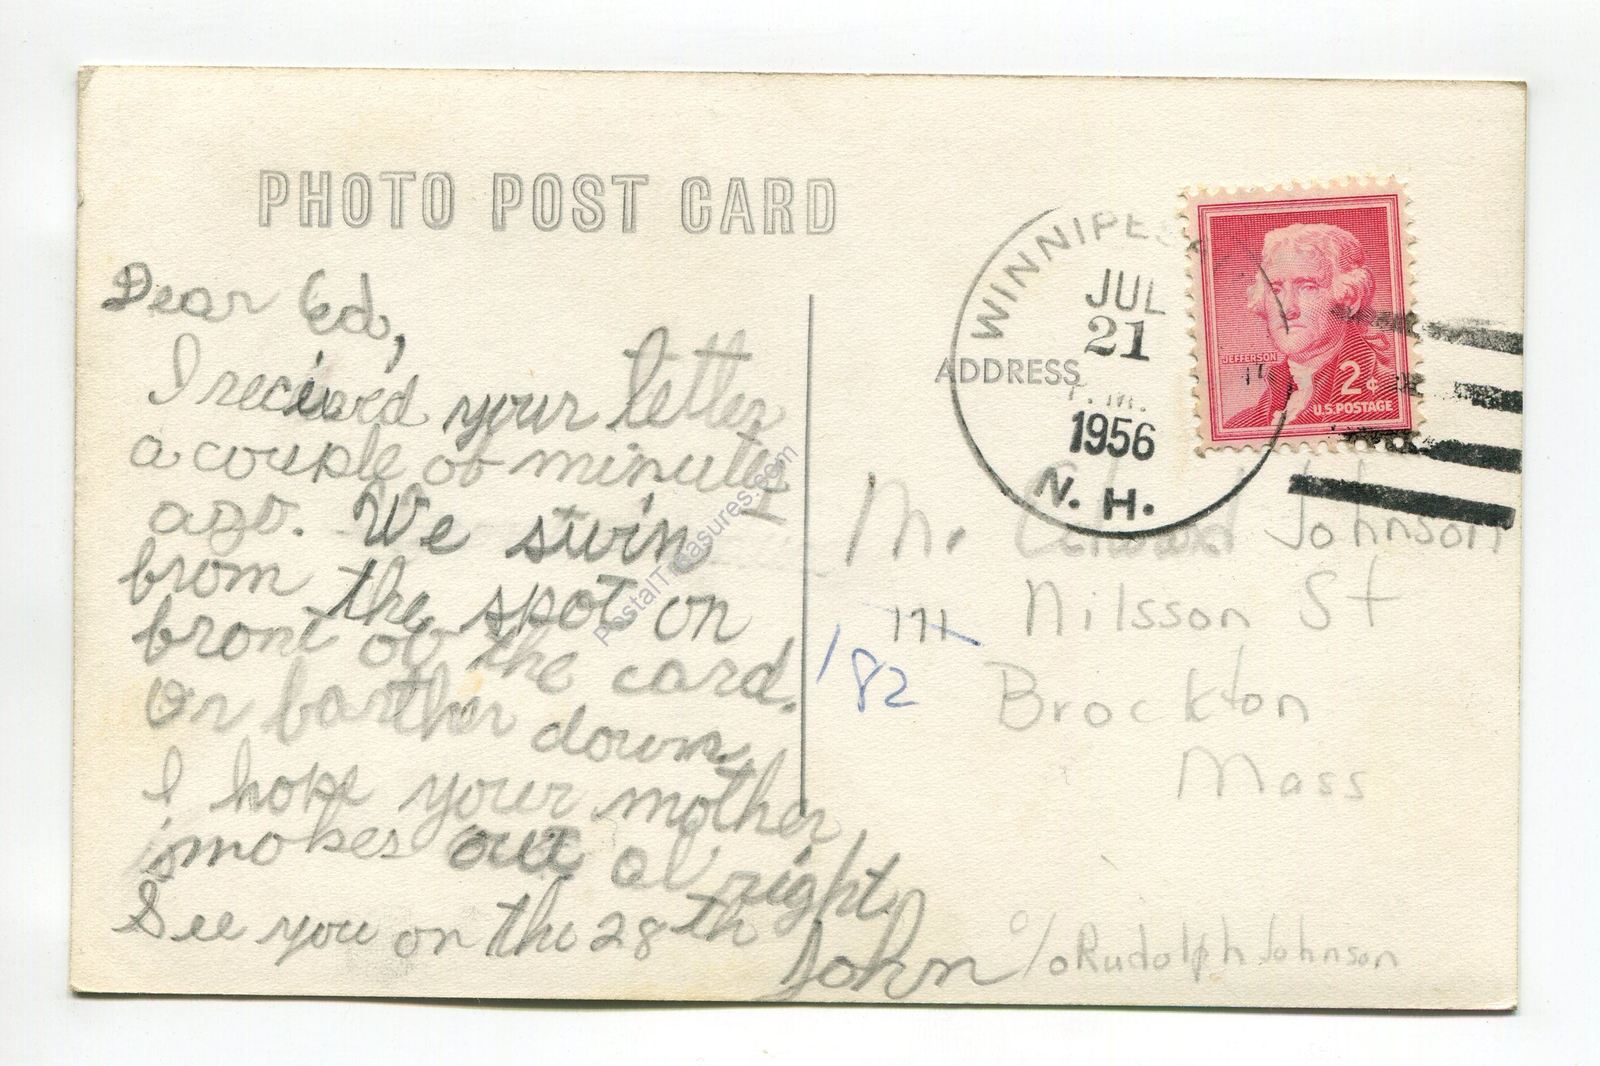 PHOTO POST CARD
Dear Ed,
I recieved your letter
a couple of minutes
ago. We swim
from the spot on
front of the card.
or farther down.
I hope your mother
makes out al right.
See you on the 28th
John
WINNIPES
JUL
21
P.M.
1956
N. H.
ADDRESS
JEFFERSON
2¢
U.S. POSTAGE
Mr. Edward Johnson
171 Nilsson St
182
Brockton
Mass
c/o Rudolph Johnson
PostalTreasures.com